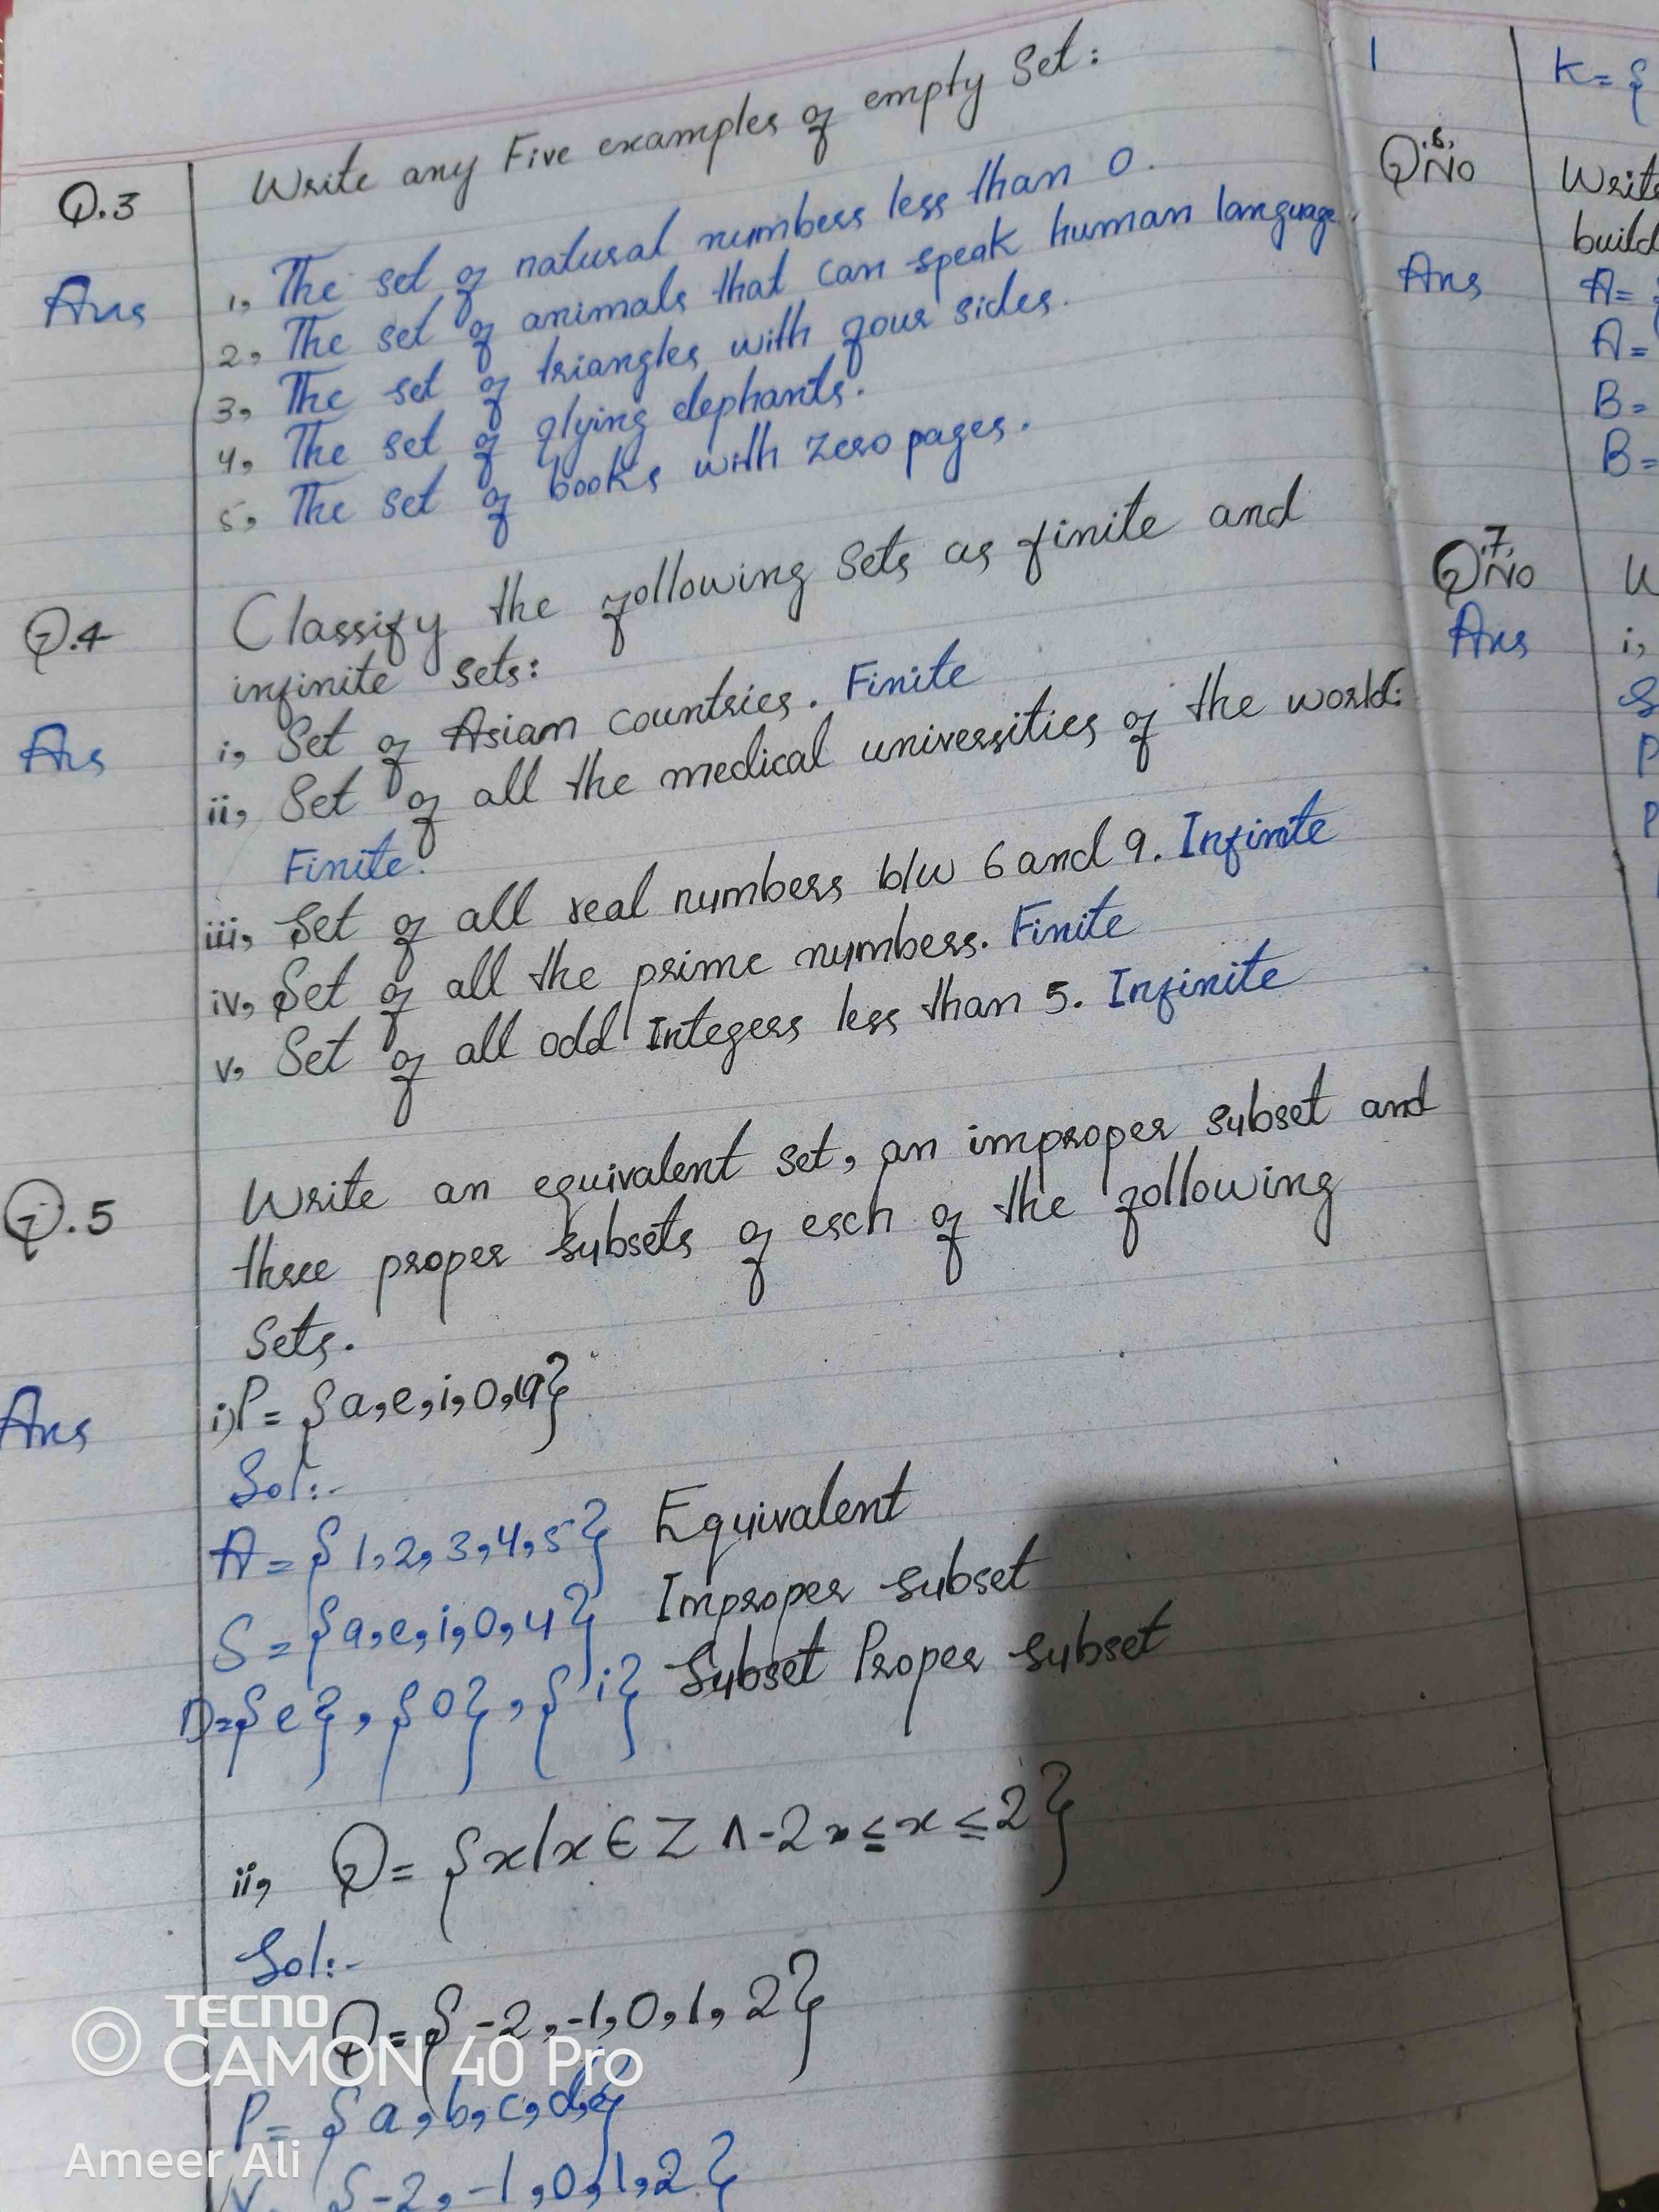 Q.3 Write any Five examples of empty Set:
Ans 1, The set of natural numbers less than 0.
2, The set of animals that can speak human language.
3, The set of triangles with four sides.
4, The set of flying elephants.
5, The set of books with zero pages.
Q.4 Classify the following Sets as finite and
infinite sets:
Ans i, Set of Asian countries. Finite
ii, Set of all the medical universities of the world:
Finite.
iii, Set of all real numbers b/w 6 and 9. Infinite
iv, Set of all the prime numbers. Finite
v, Set of all odd Integers less than 5. Infinite
Q.5 Write an equivalent set, an improper subset and
three proper subsets of esch of the following
Sets.
Ans i) P = {a, e, i, o, u}
Sol:-
A = {1, 2, 3, 4, 5} Equivalent
S = {a, e, i, o, u} Improper subset
D = {e}, {o}, {i} Subset Proper subset
ii, Q = {x/x ∈ Z ∧ -2 ≤ x ≤ 2}
Sol:-
Q = {-2, -1, 0, 1, 2}
P = {a, b, c, d, e}
{-2, -1, 0, 1, 2}
K = {
Q No .6. Write
build
Ans A = {
A =
B =
B =
Q No .7.
Ans i,
TECNO
CAMON 40 Pro
Ameer Ali